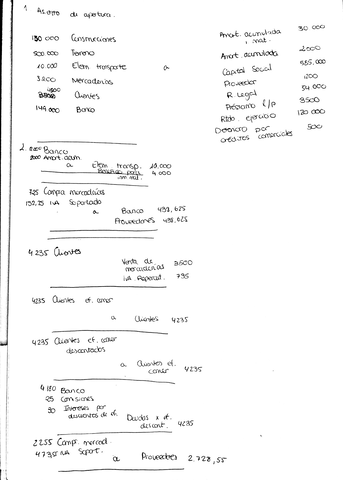 1 Asiento de apertura.
130 000 Construcciones
500 000 Terreno
10.000 Elem transporte a
3200 Mercaderías
Clientes
149.000 Banco
Amort. acumulada 30 000
i. mat.
Amort. acumulada 2000
Capital Social 585.000
Proveedor 1200
R. Legal 54 000
Préstamo l/p 3500
Rtdo. ejercicio 120 000
Deterioro por
créditos comerciales 500
2. Banco
2000 Amort. acum
a Elem transp. 10,000
4 000
725 Compra mercaderías
152,25 IVA Soportado
a Banco 438,625
Proveedores 438,625
4235 Clientes
Venta de
mercaderías 3500
IVA Repercut. 735
4235 Clientes ef. comer
a Clientes 4235
4235 Clientes ef. comer
descontados
a Clientes ef.
comer 4235
4180 Banco
25 Comisiones
30 Intereses por
descuentos de ef. Deudas x ef.
descont. 4235
2255 Comp. mercad.
IVA Soport.
a Proveedores 2.728,55